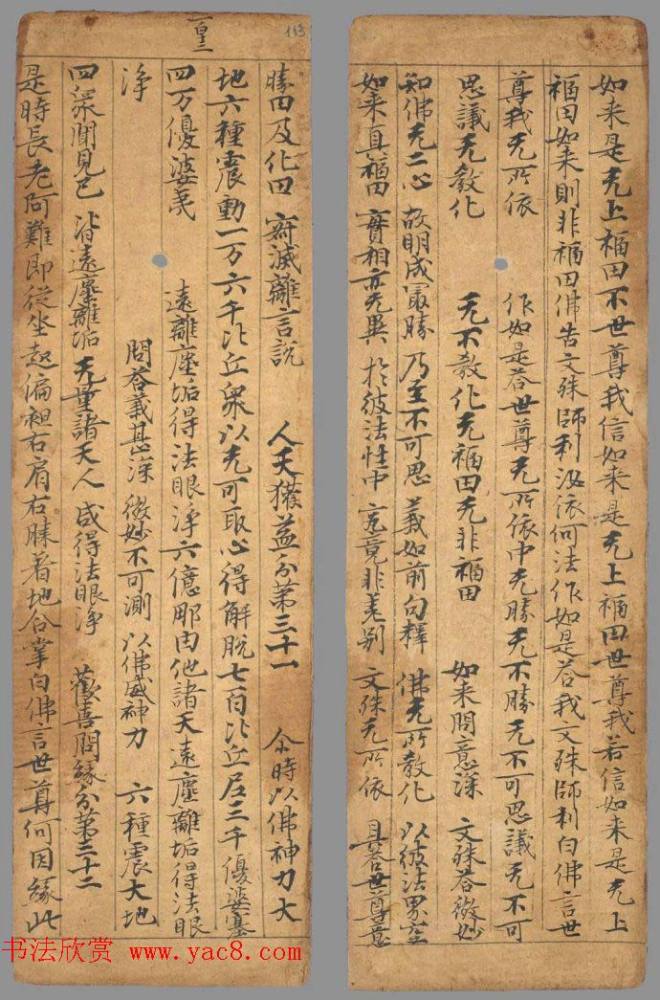 如来是无上福田不世尊我信如来是无上福田世尊我若信如来是无上
福田如来則非福田佛告文殊師利汝依何法作如是荅我文殊師利白佛言世
尊我无所依 作如是荅世尊无所依中无勝无不勝无不可思議无不可
思議无教化 无不教化无福田无非福田 如来問意深 文殊荅微妙
知佛无二心 故明成冣勝 乃至不可思 義如前句釋 佛无所教化 以彼法界空
如来真福田 實相亦无異 扵彼法性中 究竟非差别 文殊无所依 且荅世尊意
113
勝田及化田 寂滅離言説 人天獲益分第三十一 尒時以佛神力大
地六種震動一万六千比丘衆以无可取心得解脱七百比丘尼三千優婆塞
四万優婆夷 遠離塵垢得法眼淨六億那由他諸天遠塵離垢得法眼
淨 問荅義甚深 微妙不可測 以佛威神力 六種震大地
四衆聞見已 皆遠塵離垢 无量諸天人 咸得法眼淨 歡喜問緣分第三十二
是時長老阿難即從坐起偏袒右肩右膝著地合掌白佛言世尊何因緣此
书法欣赏 www.yac8.com